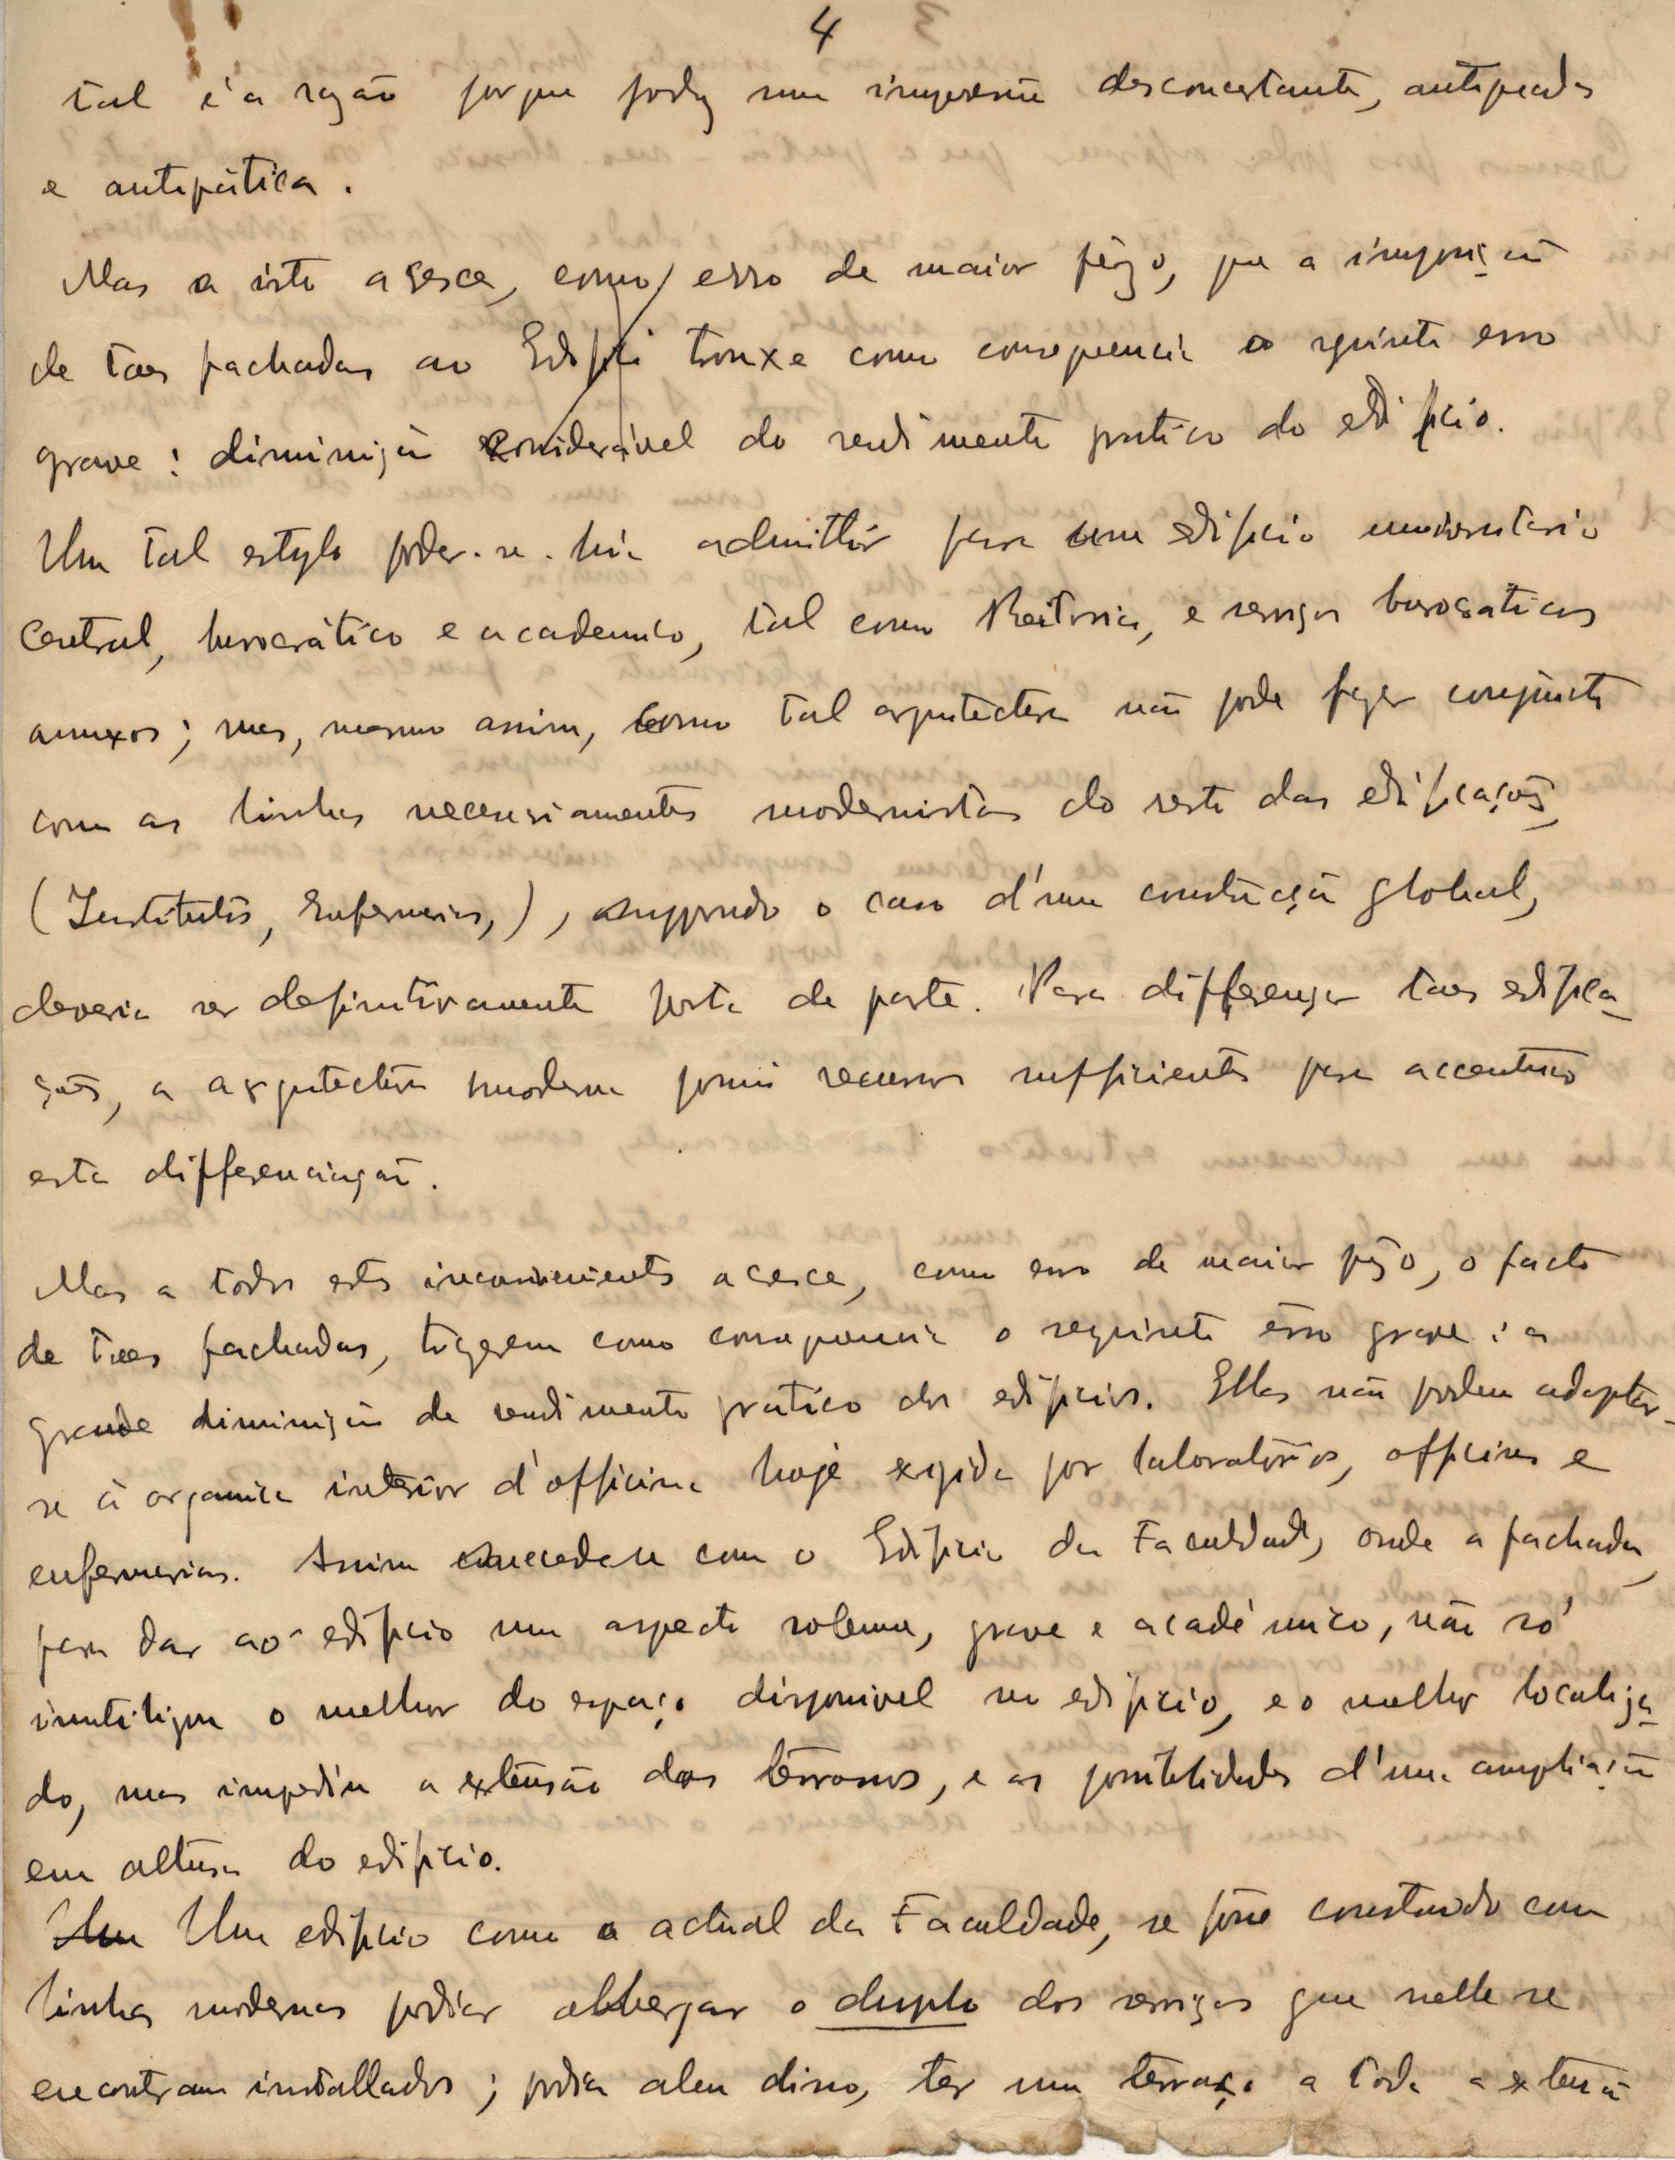 4
tal é a razão porque produz uma impressão desconcertante, antiquada
e antipática.
Mas a isto acresce, como erro de maior pêzo, que a imposição
de taes fachadas ao Edificio trouxe como consequencia o seguinte erro
grave: diminuição considerável do rendimento pratico do edificio.
Um tal estylo poder-se-hia admittir para um edificio universitario
central, burocrático e academico, tal como Reitoria, e serviços burocraticos
annexos; mas, mesmo assim, como tal arquitectura não pode fazer conjuncto
com as linhas necessariamente modernistas do resto das edificações
(Institutos, Enfermarias,), suppondo o caso d'uma construcção global,
deveria ser definitivamente posta de parte. Para differençar taes edifica-
ções, a arquitectura moderna possui recursos sufficientes para accentuar
esta differenciação.
Mas a todos estes inconvenientes acresce, como erro de maior pezo, o facto
de taes fachadas, trazerem como consequencia o seguinte erro grave: a
grande diminuição de rendimento pratico dos edificios. Ellas não podem adaptar-
se á organica interior d'officina hoje exigida por laboratórios, officinas e
enfermarias. Assim succedeu com o Edificio da Faculdade, onde a fachada,
para dar ao edificio um aspecto solemne, grave e académico, não só
inutilizou o melhor do espaço disponivel no edificio, e o melhor localiza-
do, mas impediu a extensão dos terraços, e as possibilidades d'uma ampliação
em altura do edificio.
Um Um edificio como o actual da Faculdade, se fosse construido com
linhas modernas podia albergar o duplo dos serviços que nelle se
encontram installados; podia alem disso, ter um terraço a toda a extensão